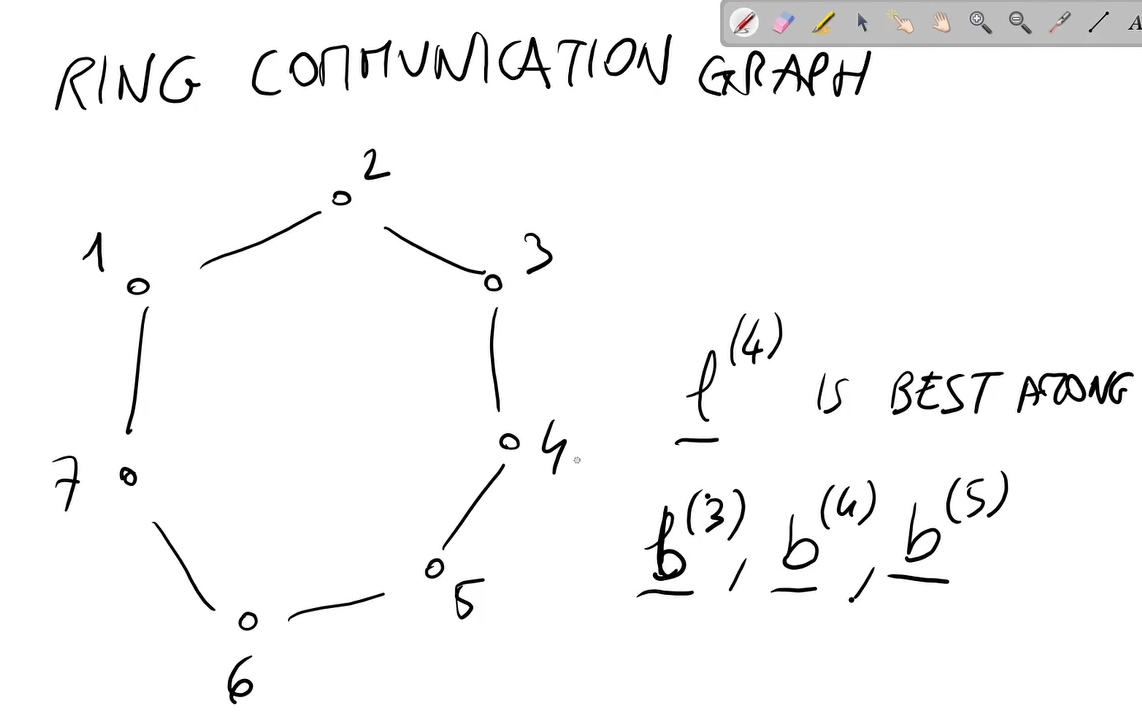 RING COMMUNICATION GRAPH
2
1
3
l^(4) IS BEST AMONG
4
7
b^(3), b^(4), b^(5)
5
6
A